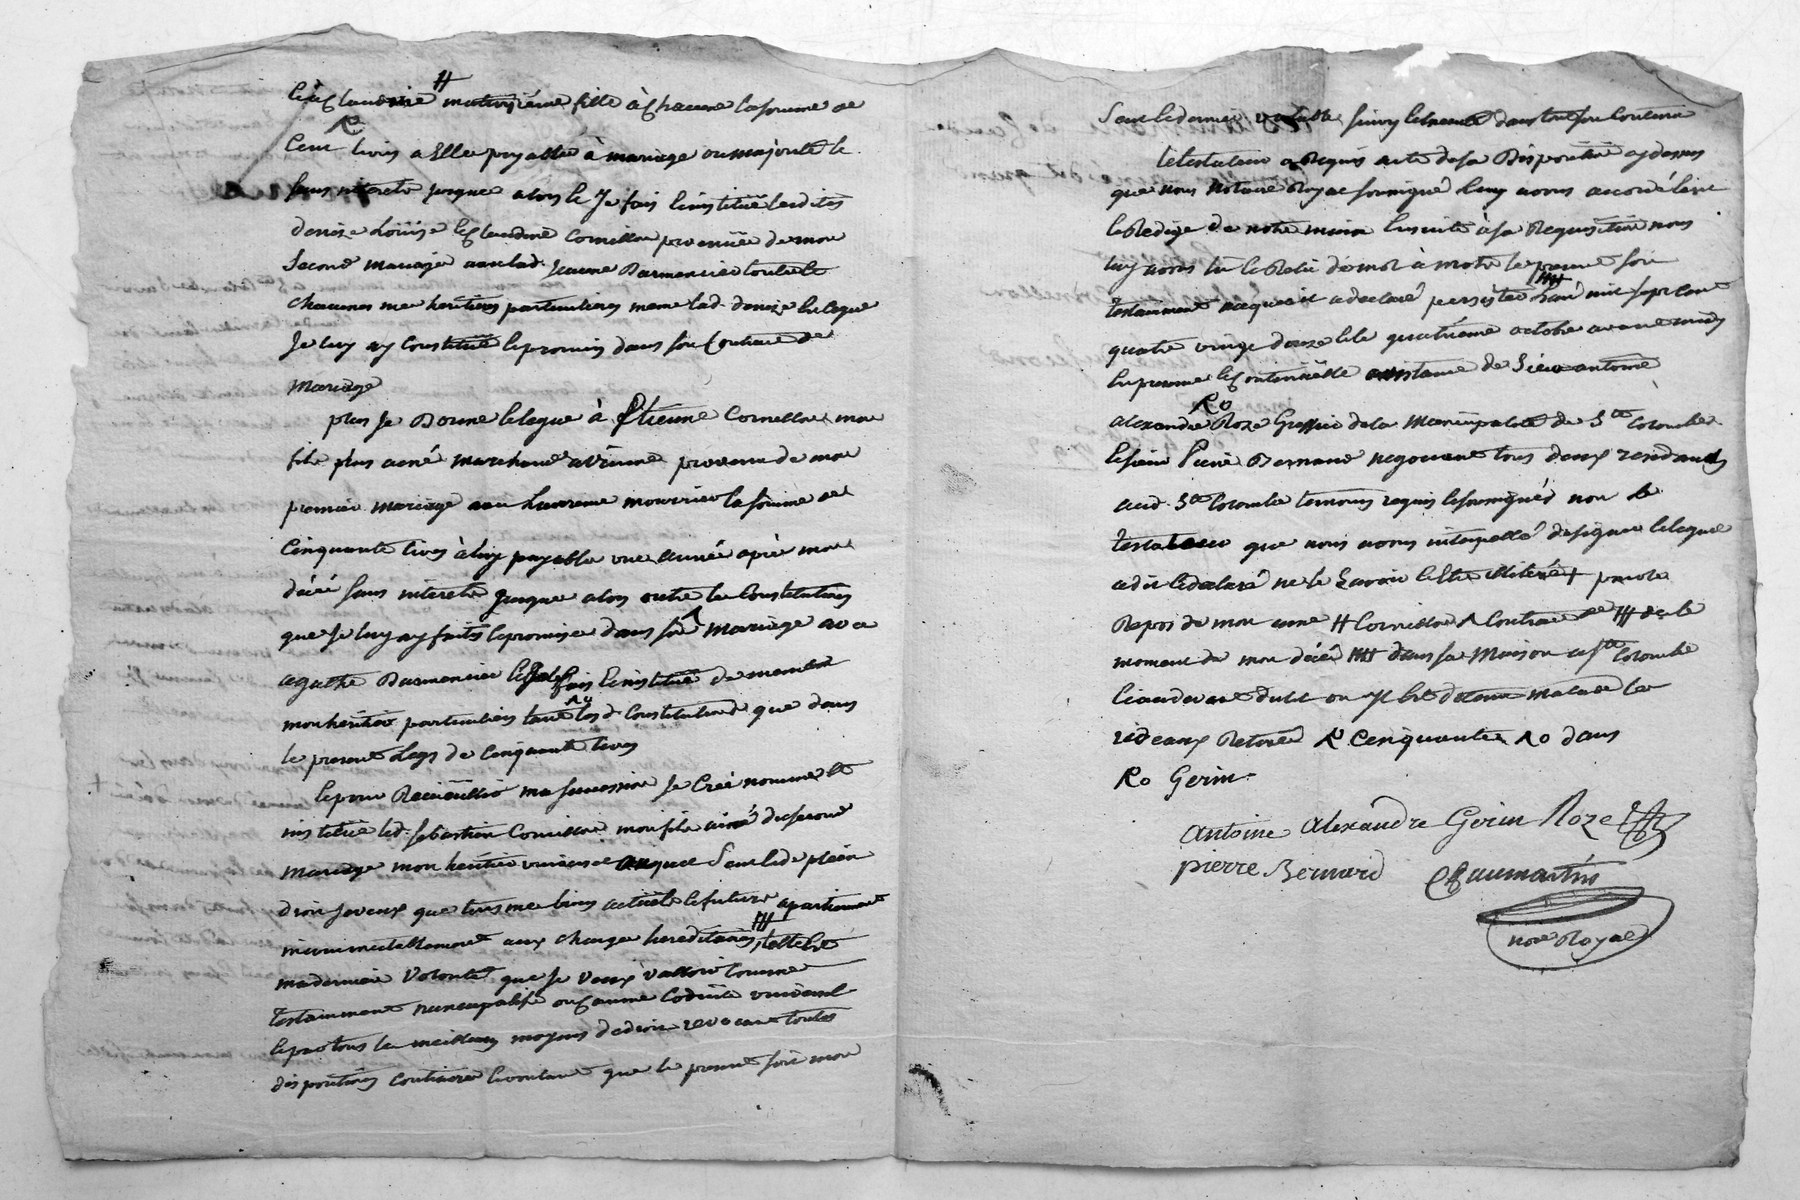 et à Claudine ma troisième fille à Chacune la somme de
Cent livres a Elle payable à mariage ou majorité et
sans interets jusques alors et Je fais et institüe lesdites
denise Loüise et Claudine Cornillon provenües de mon
Second mariage avec lad. Jeanne Parmencier toutes et
chacunes mes heritieres particulieres meme lad. denise en ce que
Je luy ay Constitué et promis dans son Contract de
Mariage
plus Je Donne et legue à Etienne Cornillon mon
fils plus ainé marchand a Vienne provenu de mon
premier mariage avec Laurence mourrier la somme de
Cinquante livres à luy payable une année après mon
décé sans interets jusques alors outre les Constitutions
que Je luy ay faites et promises dans son mariage avec
agathe Parmencier et Je le fais et institüe de meme
mon heritier particulier tant lesd. Constitutions que dans
le present Legs de Cinquante livres
et pour Recüeillir ma succession Je Crée nomme et
institüe led. Sebastien Cornillon mon fils ainé du second
mariage mon heritier universel auquel Seul et de plein
droit Je veux que tous mes biens actuels et futurs apartiennent
aux charges hereditaires, telle est
ma derniere Volonté que Je Veux Valloir Comme
testament nuncupatif ou Comme Codicile
et par tous les meilleurs moyens de droit revocant toutes
dispositions Contraires et voulant que le present soit mon
Seul et dernier Valable suivy et executé dans tout son Contenu
le testateur a Requis acte de sa Disposition cy dessus
que nous Notaire Royal soussigné luy avons accordé
et Redigé de notre main ensuite à sa Requisition nous
luy avons lu et Relu de mot à mot et le present son
testament auquel il a declaré persister mil sept cent
quatre vingt douze et le quatrième octobre avant midy
en presence et Continüelle assistance de Sieur antoine
alexandre Roze Greffier de la Municipalité de Ste Colombe
et sieur Pierre Bernard negociant tous deux residants
aud. Ste Colombe temoins requis et soussignés non le
testateur que nous avons interpellé de signer et lequel
a dit et declaré ne le Savoir et Etre illiteré + pour le
Repos de mon ame # Cornillon ^ Contract de ### des le
moment de mon décé #### dans sa Maison a Ste Colombe
ou Il est detenu malade les
rideaux Retirés Ro Cinquante Ro dans
Ro Gerin
Antoine Alexandre Gerin Roze
pierre Bernard Chaumartin
nore Royal